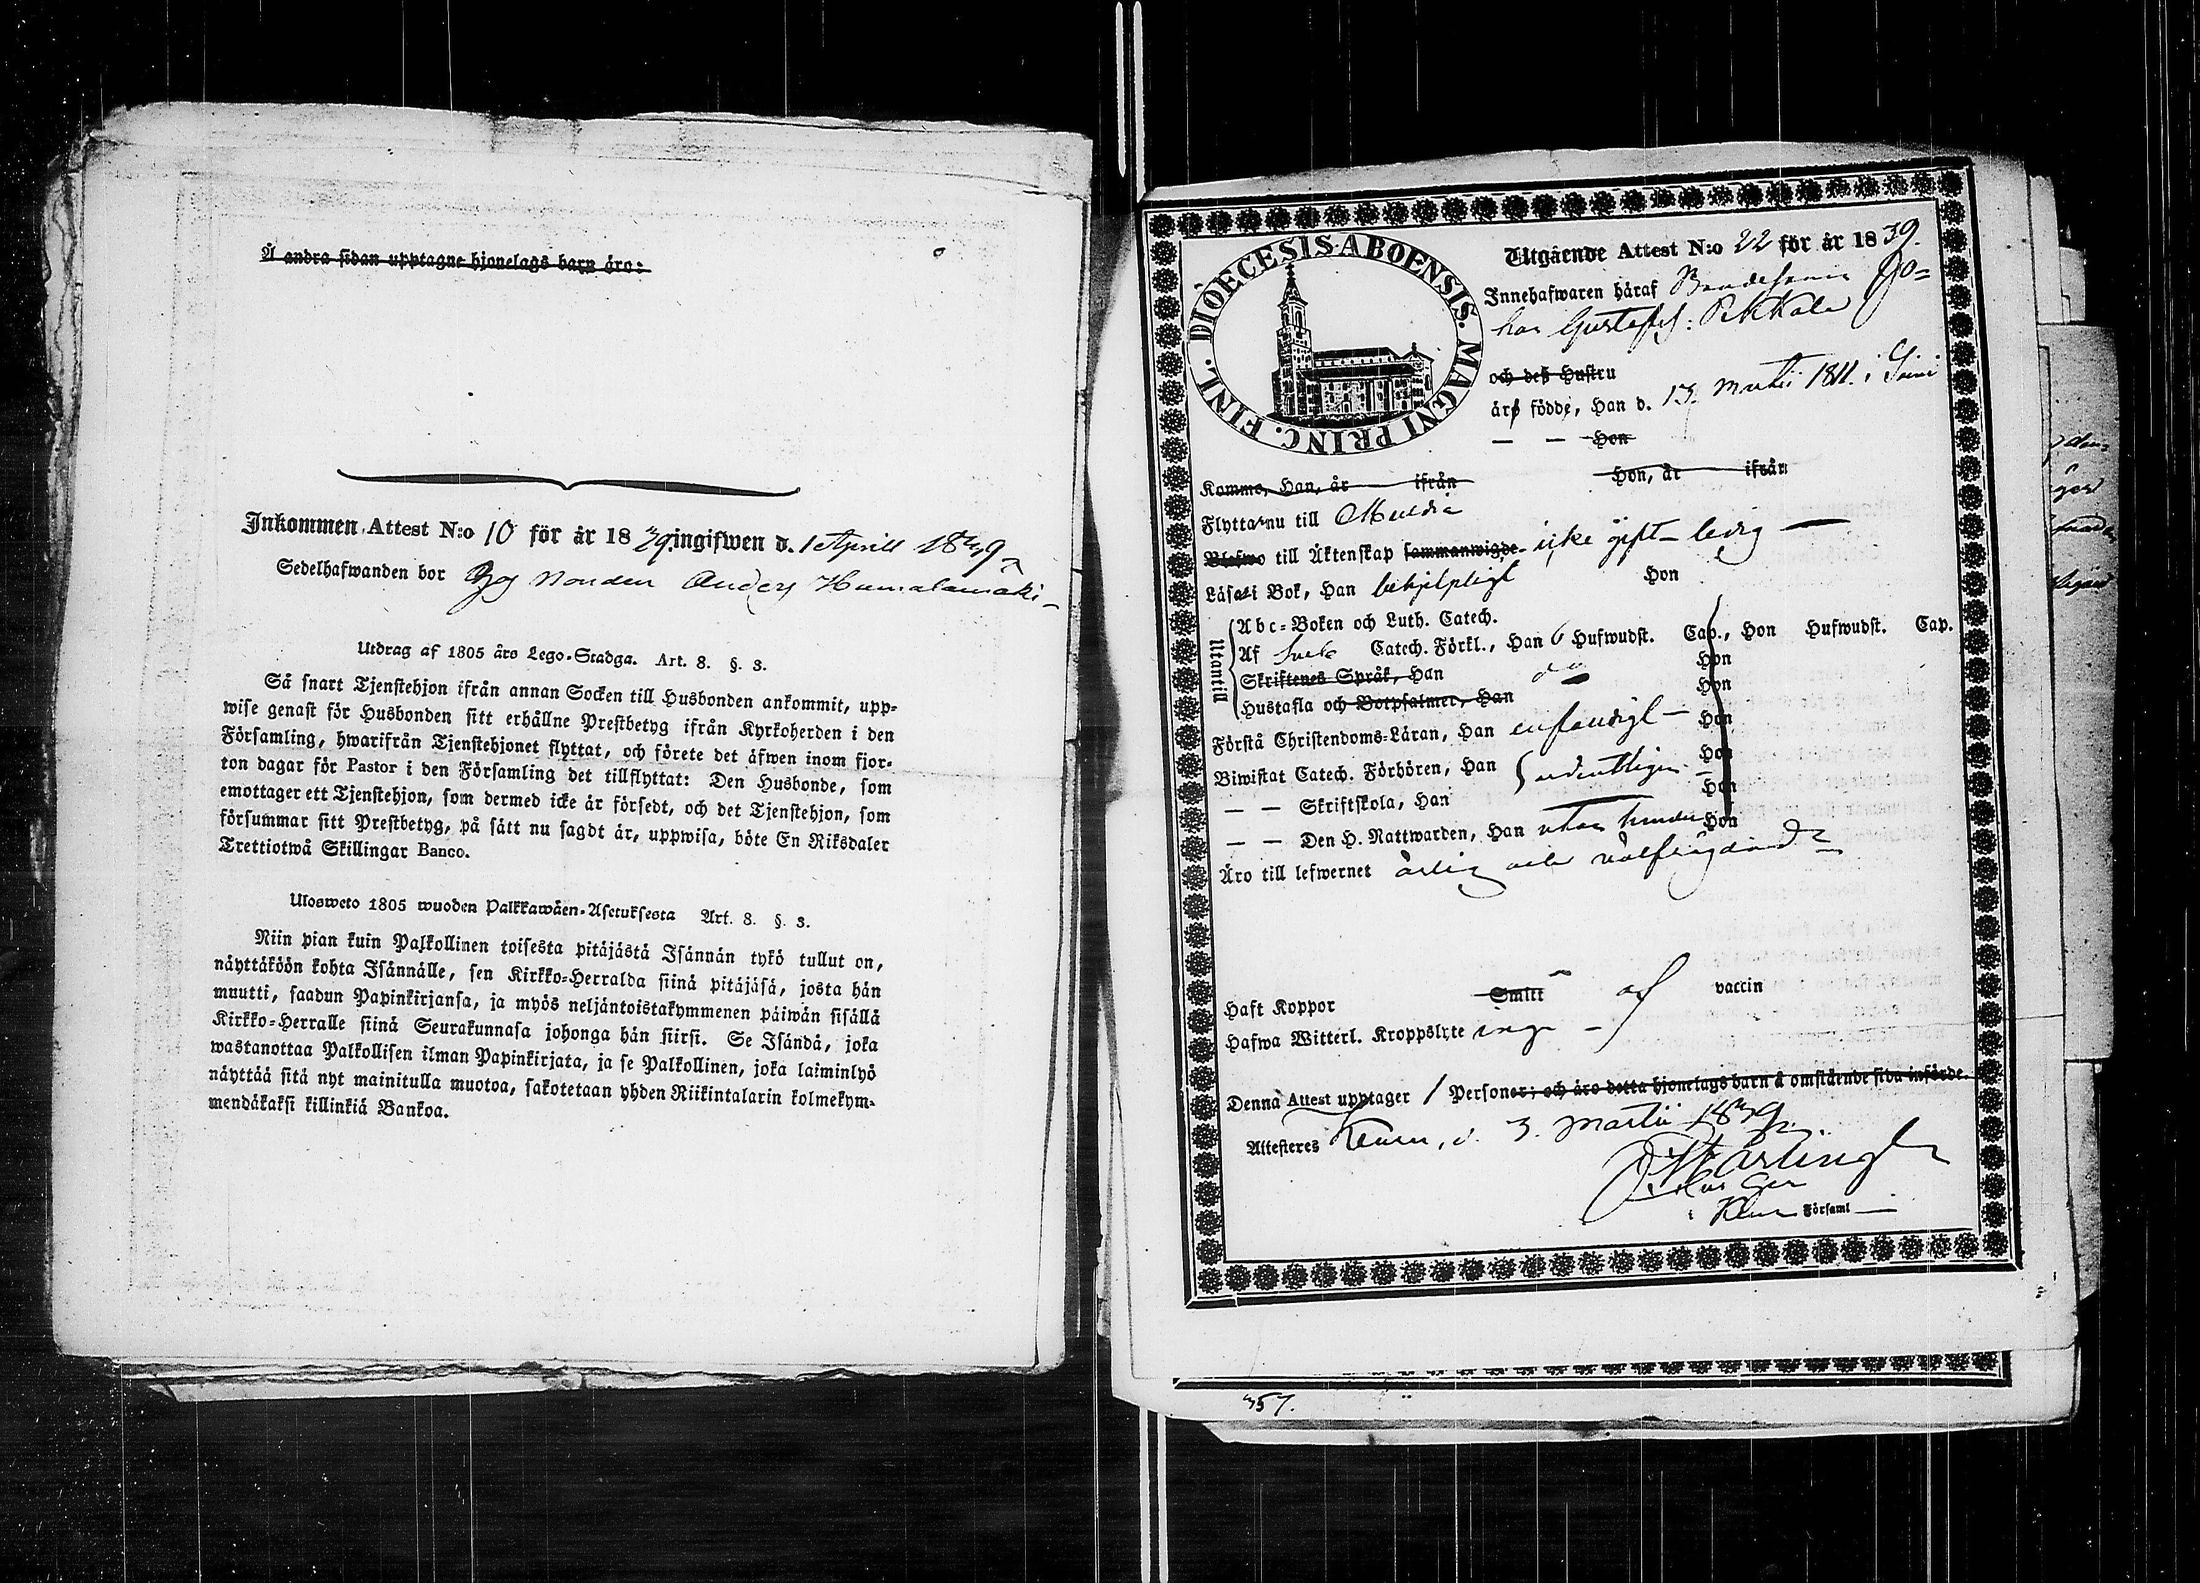 Å andra sidan upptagne hjonelags barn äro:
Inkommen Attest N:o 10 för år 1839 ingifwen d. 1 Aprill 1839
Sedelhafwanden bor hos Bonden Anders Humalamäki
Utdrag af 1805 års Lego-Stadga. Art. 8. §. 3.
Så snart Tjenstehjon ifrån annan Socken till Husbonden ankommit, upp-
wise genast för Husbonden sitt erhållne Prestbetyg ifrån Kyrkoherden i den
Församling, hwarifrån Tjenstehjonet flyttat, och förete det äfwen inom fjor-
ton dagar för Pastor i den Församling det tillflyttat: Den Husbonde, som
emottager ett Tjenstehjon, som dermed icke är försedt, och det Tjenstehjon, som
försummar sitt Prestbetyg, på sätt nu sagdt är, uppwisa, böte En Riksdaler
Trettiotwå Skillingar Banco.
Ulosweto 1805 wuoden Palkkawäen-Asetuksesta Art. 8. §. 3.
Niin pian kuin Palkollinen toisesta pitäjästä Isännän tykö tullut on,
näyttäköön kohta Isännälle, sen Kirkko-Herralda siinä pitäjäsä, josta hän
muutti, saadun Papinkirjansa, ja myös neljäntoistakymmenen päiwän sisällä
Kirkko-Herralle siinä Seurakunnasa johonga hän siirsi. Se Isändä, joka
wastanottaa Palkollisen ilman Papinkirjata, ja se Palkollinen, joka laiminlyö
näyttää sitä nyt mainitulla muotoa, sakotetaan yhden Riikintalarin kolmekym-
mendäkaksi killinkiä Bankoa.
DIOECESIS ABOENSIS. MAGNI PRINC. FINL.
Utgående Attest N:o 22 för år 1839.
Innehafwaren häraf Bondesonen Jo-
han Gustafss: Pekkala
och deß Hustru
äro födde, Han d. 13 Martii 1811. i
— — Hon
Komne, Han, år ifrån Hon, år ifrån
Flytta nu till Muldia
Blefwo till Äktenskap sammanwigde icke gift – ledig —
Läsa i Bok, Han behjelpligt Hon
Utantill
Abc-Boken och Luth. Catech.
Af Catech. Förkl., Han 6 Hufwudst. Cap., Hon Hufwudst. Cap.
Skriftenes Språk, Han Hon
Hustafla och Botpsalmer, Han Hon
Förstå Christendoms-Läran, Han enfaldigt — Hon
Biwistat Catech. Förhören, Han ordentligen Hon
— — Skriftskola, Han Hon
— — Den H. Nattwarden, Han utan hinder Hon
Äro till lefwernet ärlig och välfrägdad
Haft Koppor Smitt af vaccin
Hafwa Witterl. Kroppslyte inga —
Denna Attest upptager 1 Personer; och äro detta hjonelags barn å omstående sida införde.
Attesteras Keuru, d. 3. Martii 1839.
i Keuru Församl
357.